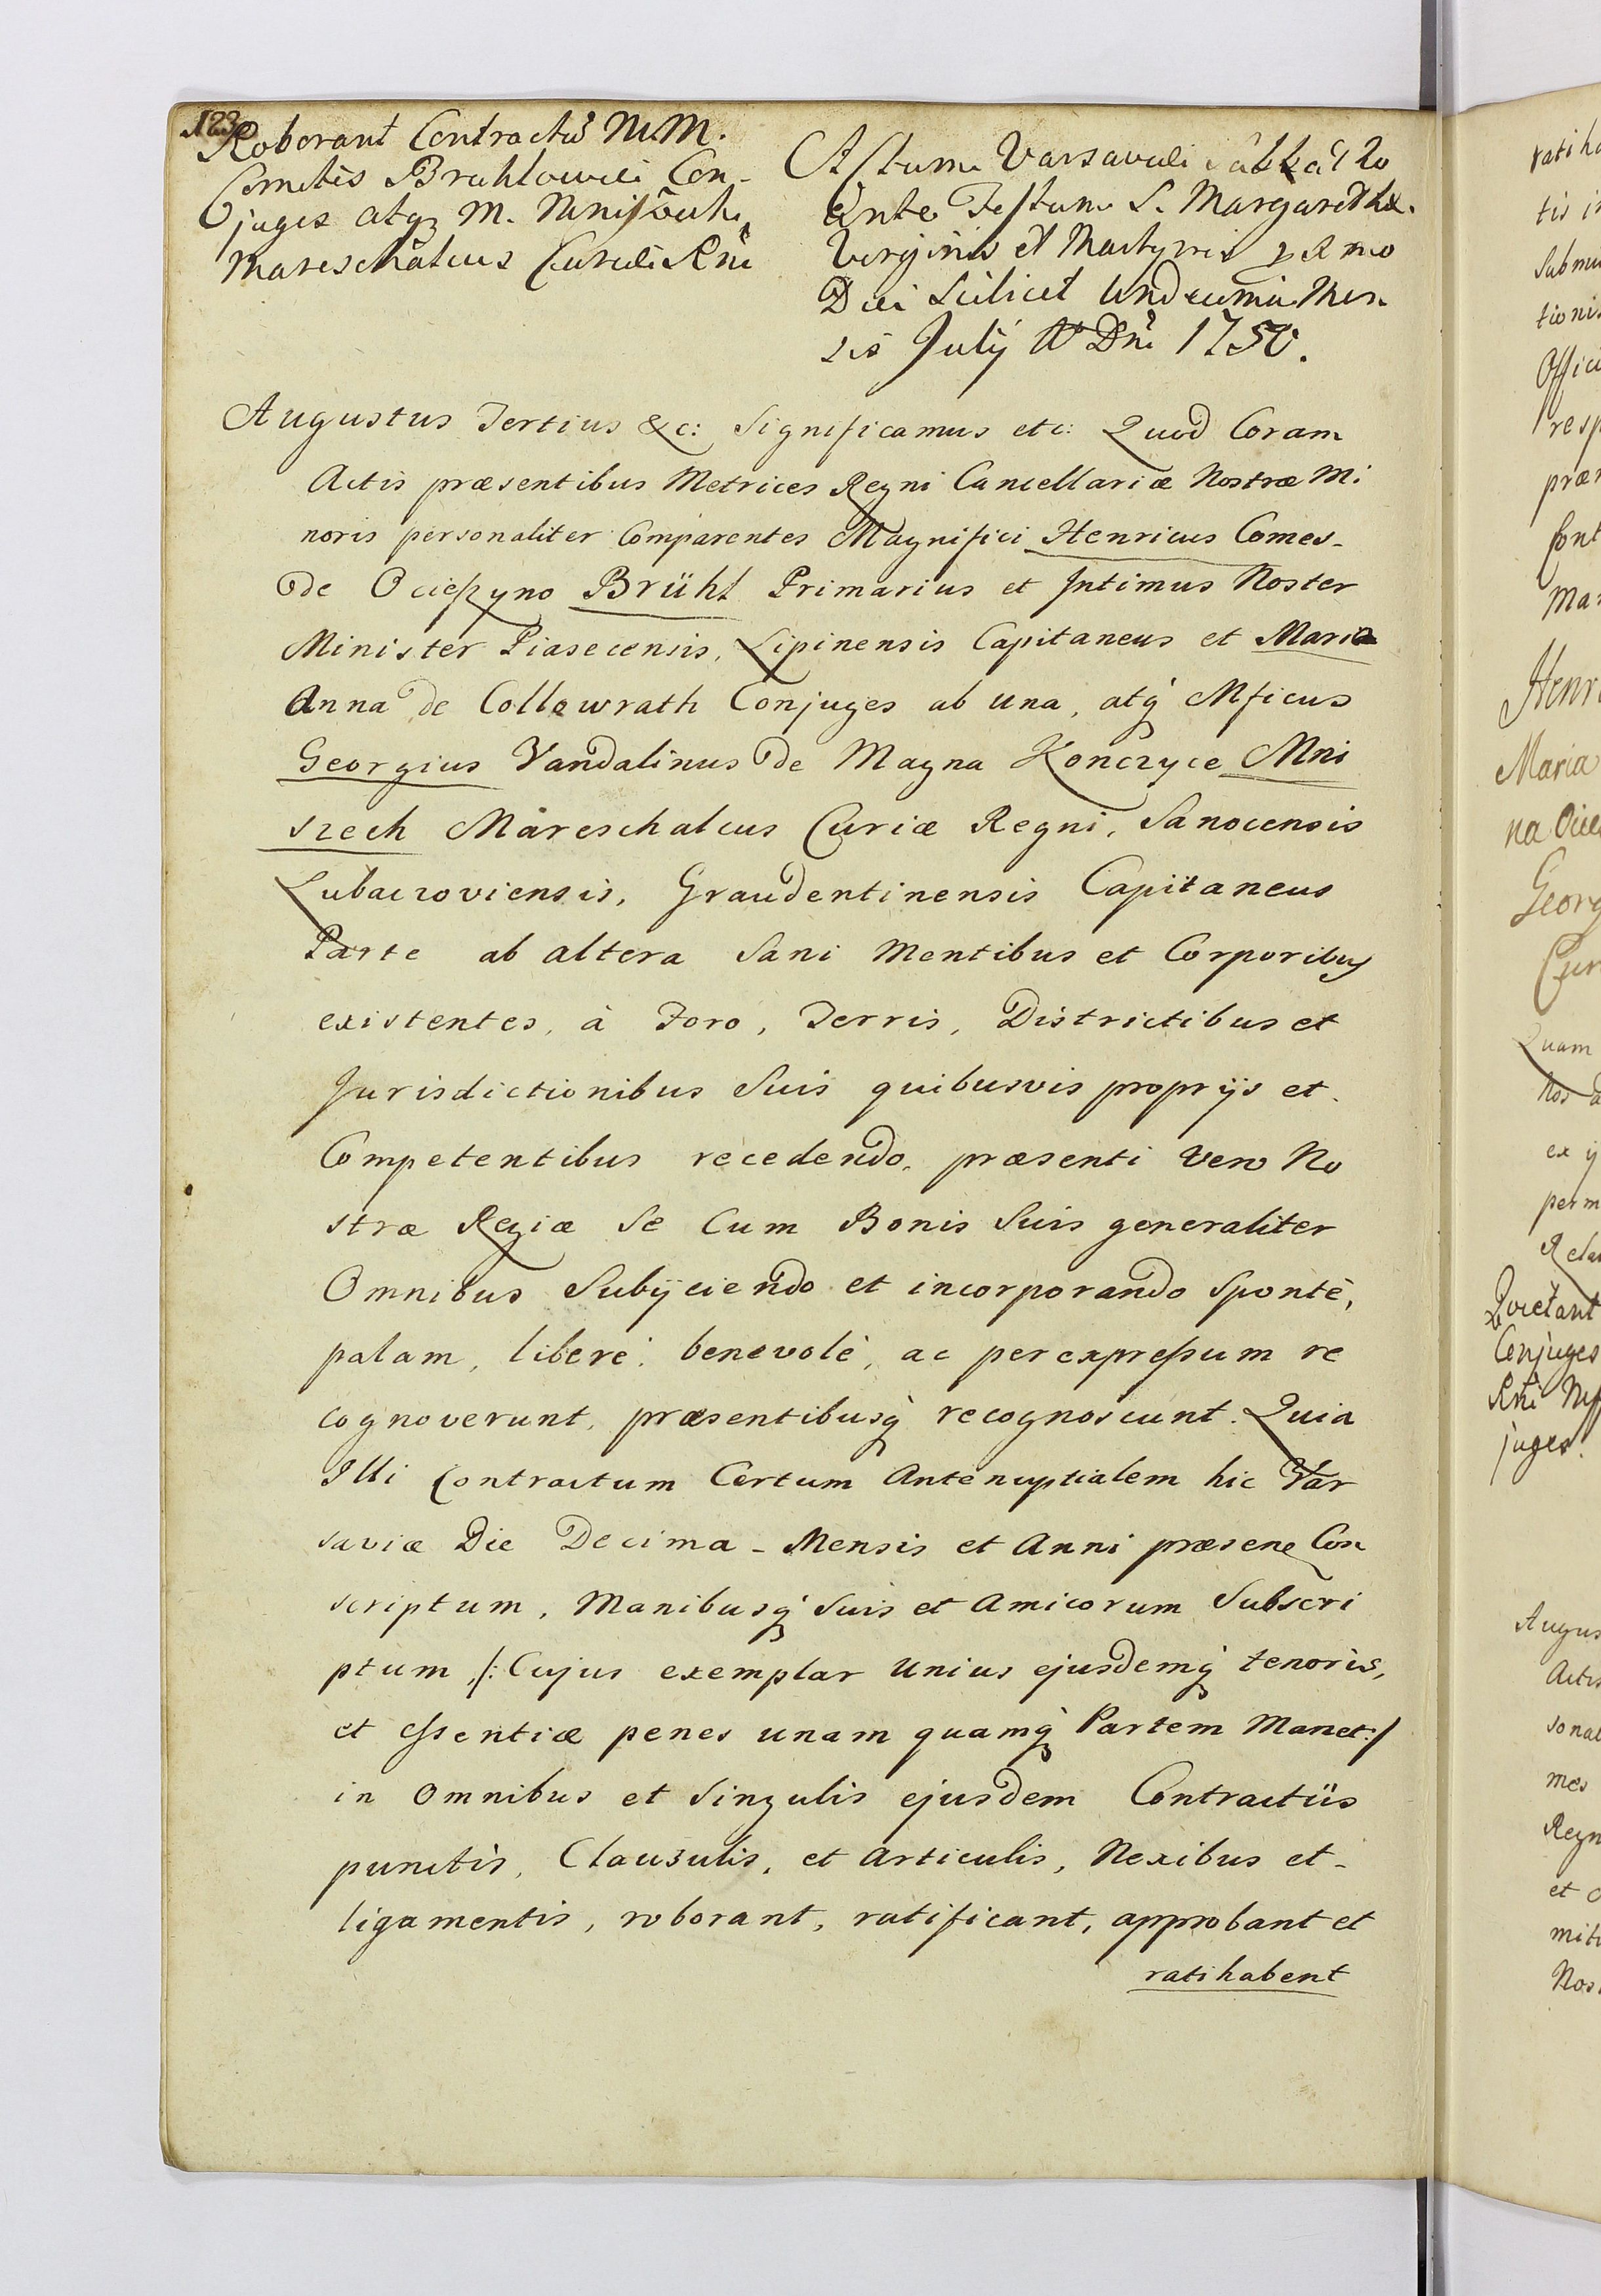 123
Roborant Contractū MM.
Comites Bruhlowie Con-
juges atq; M.
Mareschalcus Curiæ Rni
Actum Varsaviæ Sabbatho
Ante Festum S. Margarethæ
Virginis et Martyris
Die Scilicet Undecima Men
sis Julij Aō Dñi 1750.
Augustus Tertius &c: Significamus etc: Quod Coram
Actis præsentibus Metrices Regni Cancellariæ Nostræ Mi
noris personaliter Comparentes Magnifici Henricus Comes-
de Ocieszyno Brühl Primarius et Intimus Noster
Minister Piasecensis, Lipinensis Capitaneus et Maria
Anna de Collowrath Conjuges ab una, atq́ Mficus
Georgius Vandalinus de Magna Konczyce Mni
szech Mareschalcus Curiæ Regni, Sanocensis
Lubaczoviensis, Graudentinensis Capitaneus
Parte ab altera Sani Mentibus et Corporibus
existentes, à Foro, Terris, Districtibus et
Jurisdictionibus Suis quibusvis proprijs et
Competentibus recedendo, præsenti vero No
stræ Regiæ Se Cum Bonis Suis generaliter
Omnibus Subijciendo et incorporando Spontè,
palam, liberè, benevolè, ac per expressum re
cognoverunt, præsentibusq́ recognoscunt. Quia
Illi Contractum Certum Antenuptialem hic Var
saviæ Die Decima - Mensis et Anni præsene Con
scriptum, Manibusq́ Suis et Amicorum Subscri
ptum /: Cujus exemplar Unius ejusdemq́ tenoris,
et essentiæ penes unam quamq́ Partem Manet :/
in Omnibus et Singulis ejusdem Contractûs
punctis, Clausulis, et Articulis, Nexibus et-
ligamentis, roborant, ratificant, approbant et
ratihabent
ratiha
tis i
Submi
tionis
Offici
resp
præ
Mar
Henri
Maria
na Ocie
Georg
Cur
Quam
Nos a
ex ij
perm
Rela
Quietant
Conjuges
Rni
juges.
Augus
Actis
sonal
mes
Regn
et
mit
Nos